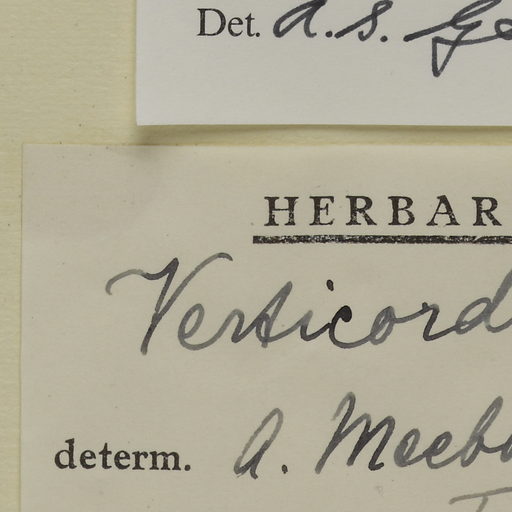 Det. A.S. Ge
HERBAR
Verticord
determ. A. Meeb